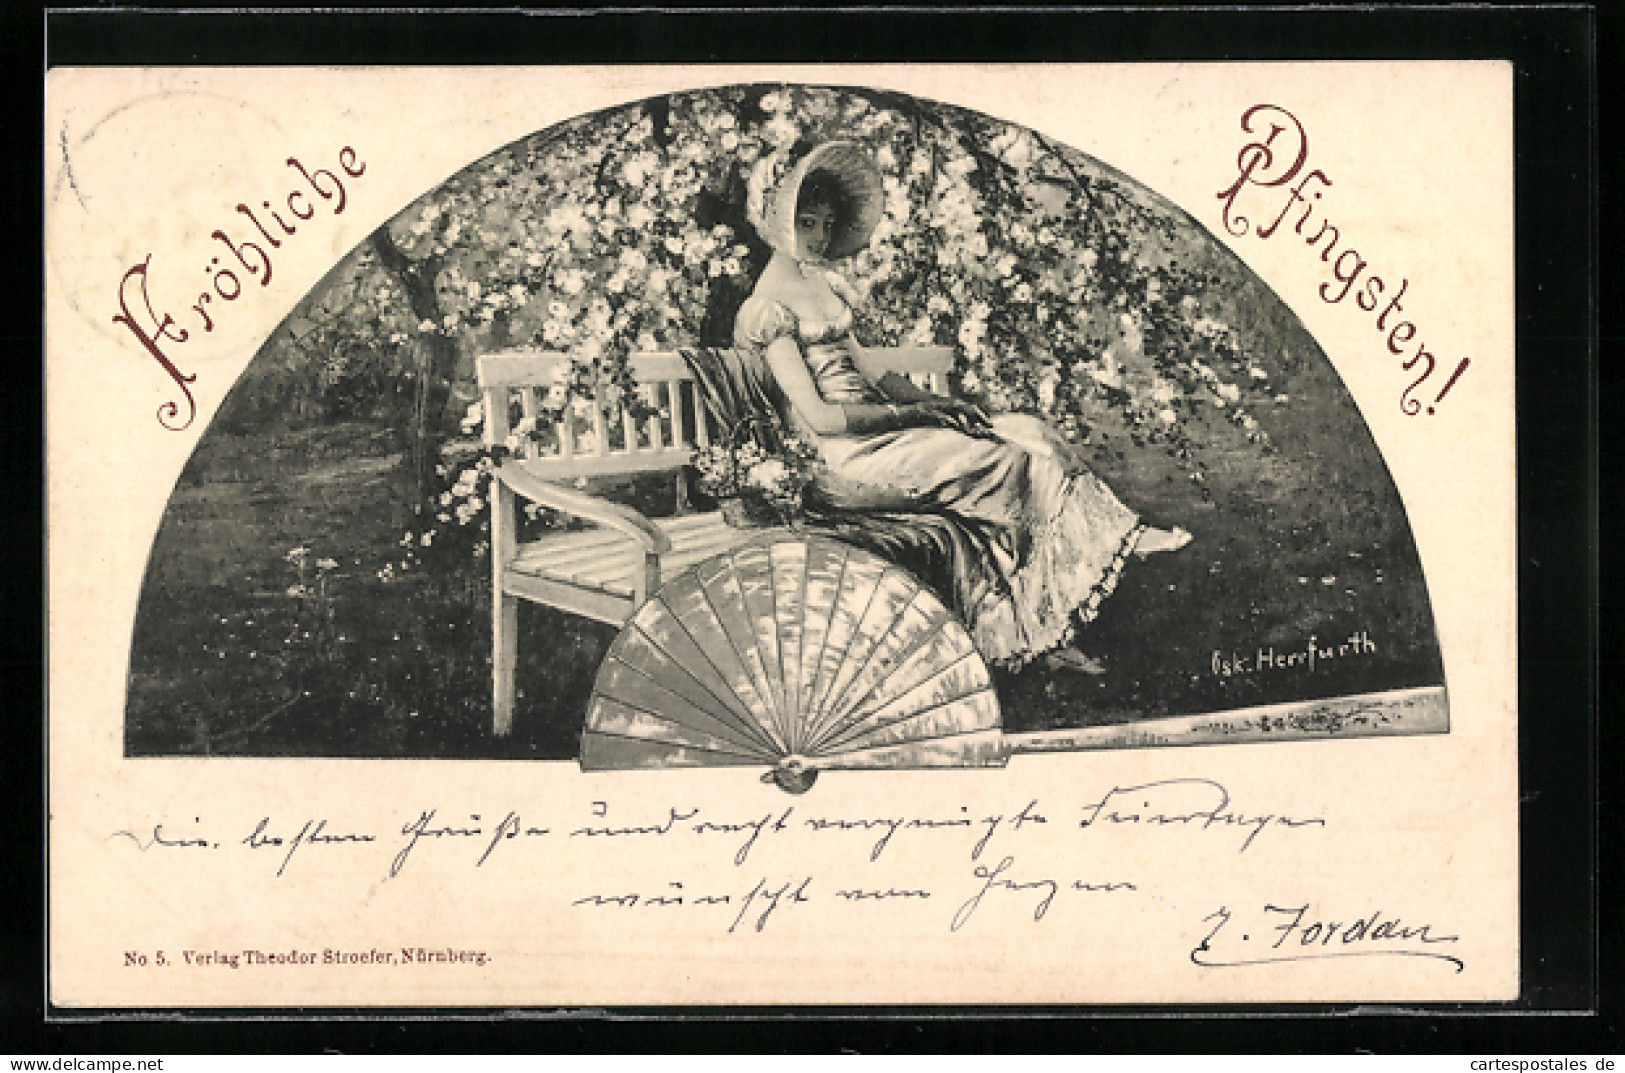 Fröhliche Pfingsten!
Osk. Herrfurth
Die besten Grüße und recht vergnügte Feiertage
wünscht von Herzen
J. Jordan
No 5. Verlag Theodor Stroefer, Nürnberg.
www.delcampe.net
cartespostales de